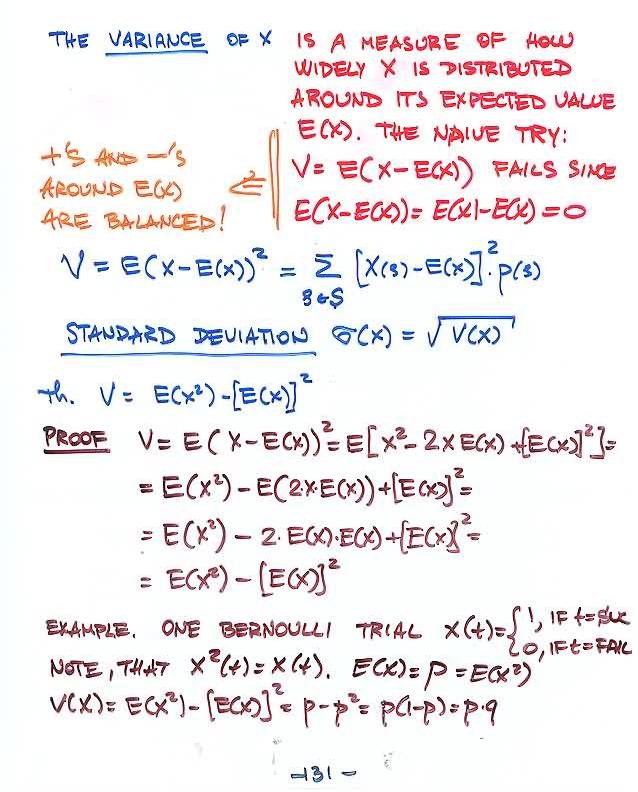 THE VARIANCE OF X IS A MEASURE OF HOW
WIDELY X IS DISTRIBUTED
AROUND ITS EXPECTED VALUE
E(X). THE NAIVE TRY:
V = E(X-E(X)) FAILS SINCE
E(X-E(X)) = E(X)-E(X) = 0
+'S AND -'S
AROUND E(X)
ARE BALANCED!
V = E(X-E(X))² = Σ [X(s)-E(X)]²·p(s)
s∈S
STANDARD DEVIATION σ(X) = √V(X)
Th. V = E(X²)-[E(X)]²
PROOF V= E(X-E(X))²=E[X²-2XE(X)+[E(X)]²]=
= E(X²)-E(2·X·E(X))+[E(X)]²=
= E(X²)-2·E(X)·E(X)+[E(X)]²=
= E(X²)-[E(X)]²
EXAMPLE. ONE BERNOULLI TRIAL X(t)={1, IF t=SUC
0, IF t=FAIL
NOTE, THAT X²(t)=X(t). E(X)=p=E(X²)
V(X)=E(X²)-[E(X)]²=p-p²=p(1-p)=p·q
-131-